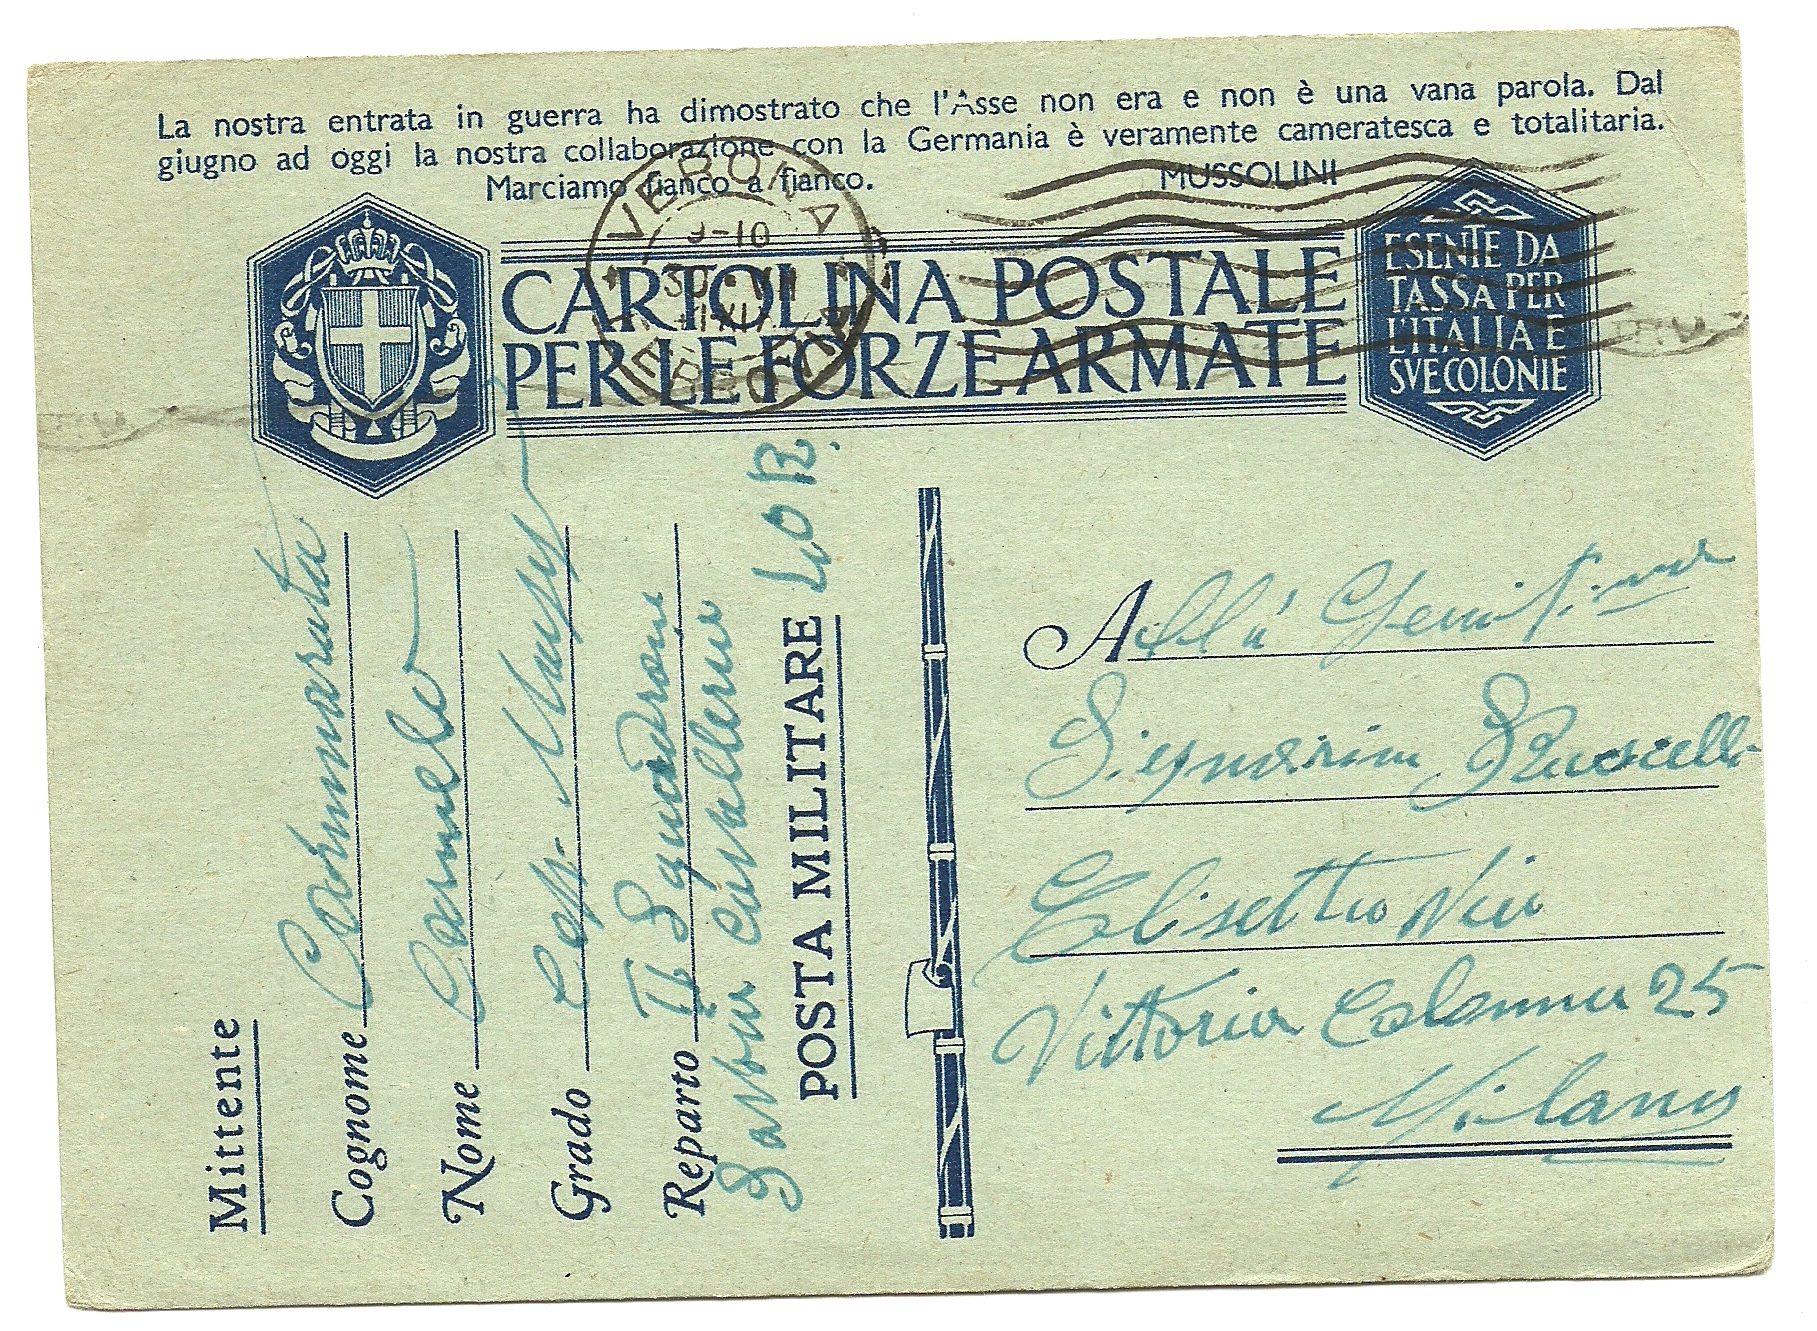 La nostra entrata in guerra ha dimostrato che l'Asse non era e non è una vana parola. Dal
giugno ad oggi la nostra collaborazione con la Germania è veramente cameratesca e totalitaria.
Marciamo fianco a fianco. MUSSOLINI
VERONA
9-10
CARTOLINA POSTALE
PER LE FORZE ARMATE
ESENTE DA
TASSA PER
L'ITALIA E
SVE COLONIE
Mittente
Cognome Cammarata
Nome Carmelo
Grado Cap. Magg
Reparto II Squadrone
Savoia Cavalleria
POSTA MILITARE
Alla Gentil.ma
Signorina
Elisetta Via
Vittoria Colonna 25
Milano